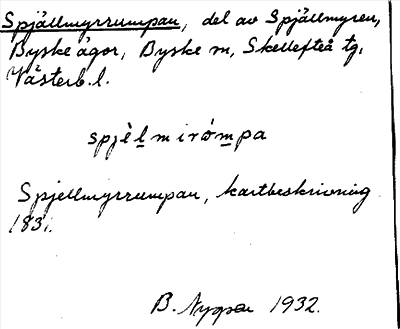 Spjällmyrrumpan, del av Spjällmyren,
Byske ägor, Byske m, Skellefteå tg,
Västerb. l.
spjèl̲miróm̲pa
Spjellmyrrumpan, kartbeskrivning
1831.
B. Nygren 1932.